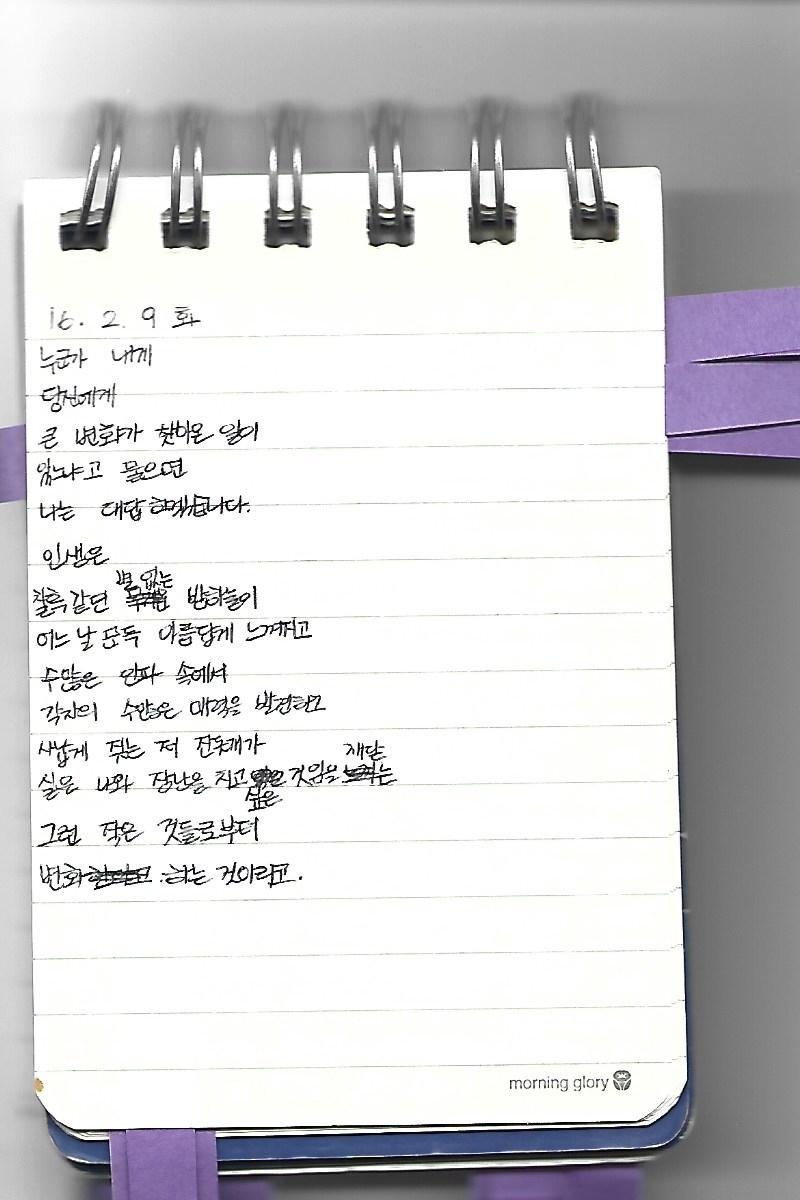 16. 2. 9 화
누군가 내게
당신에게
큰 변화가 찾아온 일이
있냐고 물으면
나는 대답하겠습니다.
인생은
칠흑같던 별 없는 밤하늘이
어느 날 문득 아름답게 느껴지고
수많은 인파 속에서
각자의 수많은 매력을 발견하고
사납게 짖는 저 진돗개가
실은 나와 장난을 치고 싶은 것임을 깨닫는
그런 작은 것들로부터
변화 하는 것이라고.
morning glory